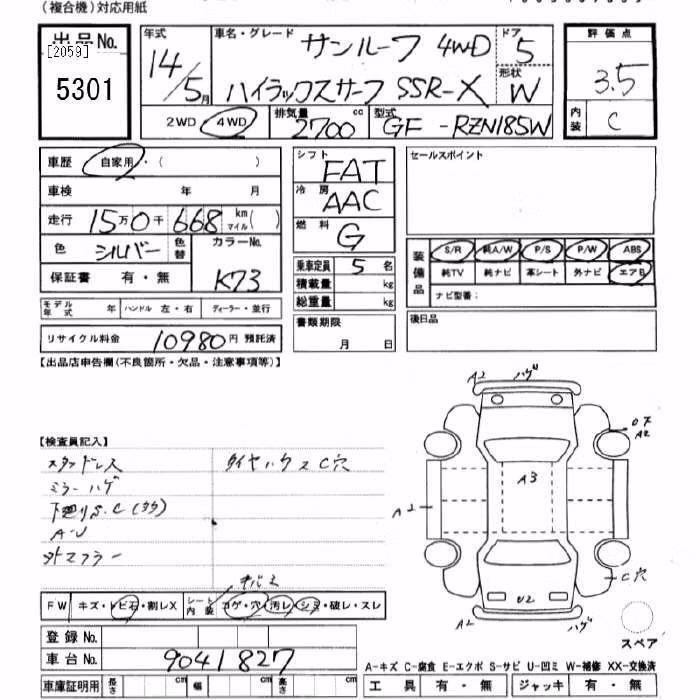 (複合機)対応用紙
出品No.
[2059]
5301
年式
14/5月
車名・グレード
サンルーフ 4WD
ハイラックスサーフ SSR-X
ドア
5
形状
W
評価点
3.5
内装
C
2WD 4WD
排気量
2700 cc
型式
GF-RZN185W
車歴 自家用・( )
車検 年 月
走行 15万0千668 km マイル( )
色 シルバー 色替
カラーNo.
K73
保証書 有・無
モデル年式 年 ハンドル 左・右 ディーラー・並行
リサイクル料金 10980円 預託済
シフト
FAT
冷房
AAC
燃料
G
乗車定員 5 名
積載量 kg
総重量 kg
書類期限
月 日
セールスポイント
装備品
S/R 純A/W P/S P/W ABS
純TV 純ナビ 革シート 外ナビ エアB
ナビ型番:
後日品
【出品店申告欄(不良箇所・欠品・注意事項等)】
【検査員記入】
スタッドレス
ミラーハゲ
下廻りS.C(多分)
A-U
外マフラー
タイヤハウスC穴
A2 ハゲ
A2
A3
A2
C穴
U2
A2 ハゲ
スペア
FW キズ・トビ石・割レX
シート内装 コゲ・穴 汚レ・シミ・破レ・スレ
登録No.
車台No. 9041827
車庫証明用 長さ cm 幅 cm 高さ cm
A-キズ C-腐食 E-エクボ S-サビ U-凹ミ W-補修 XX-交換済
工具 有・無 ジャッキ 有・無